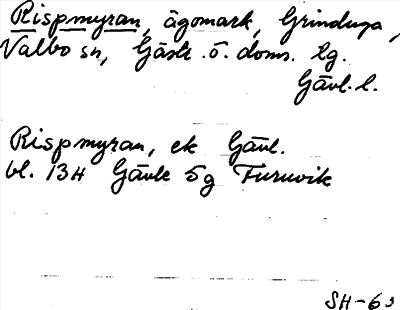 Rispmyran, ägomark, Grinduga,
Valbo sn, Gästr. ö. doms. lg.
Gävl. l.
Rispmyran, ek Gävl.
bl. 13H Gävle 5g Furuvik
SH-63